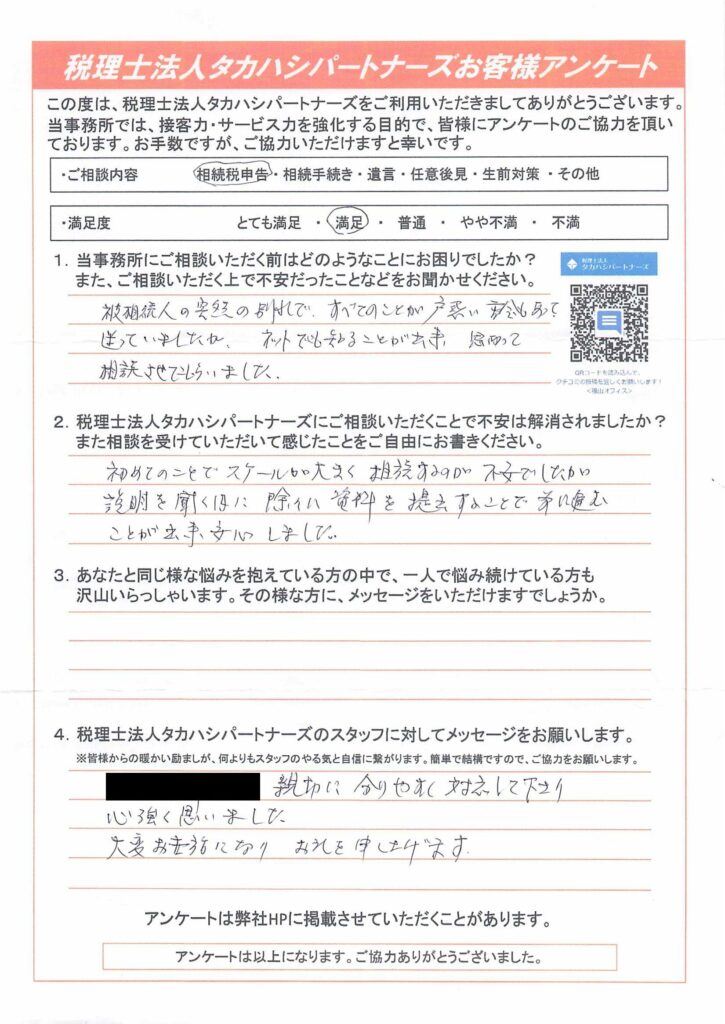 税理士法人タカハシパートナーズお客様アンケート
この度は、税理士法人タカハシパートナーズをご利用いただきましてありがとうございます。
当事務所では、接客力・サービス力を強化する目的で、皆様にアンケートのご協力を頂い
ております。お手数ですが、ご協力いただけますと幸いです。
・ご相談内容 相続税申告・相続手続き・遺言・任意後見・生前対策・その他
・満足度 とても満足 ・ 満足 ・ 普通 ・ やや不満 ・ 不満
1. 当事務所にご相談いただく前はどのようなことにお困りでしたか？
また、ご相談いただく上で不安だったことなどをお聞かせください。
税理士法人
タカハシパートナーズ
被相続人の突然の別れで、すべてのことが戸惑い
迷っていましたが、ネットでも知ることが出来 思いきって
相談させてもらいました。
QRコードを読み込んで、
クチコミの投稿を宜しくお願いします！
<福山オフィス>
2. 税理士法人タカハシパートナーズにご相談いただくことで不安は解消されましたか？
また相談を受けていただいて感じたことをご自由にお書きください。
初めてのことでスケールが大きく 相談するのが 不安でしたが
説明を聞く毎に 資料を 提出することで 前に進む
ことが出来、安心しました。
3. あなたと同じ様な悩みを抱えている方の中で、一人で悩み続けている方も
沢山いらっしゃいます。その様な方に、メッセージをいただけますでしょうか。
4. 税理士法人タカハシパートナーズのスタッフに対してメッセージをお願いします。
※皆様からの暖かい励ましが、何よりもスタッフのやる気と自信に繋がります。簡単で結構ですので、ご協力をお願いします。
親切に 分りやすく 対応して下さり
心強く思いました。
大変お世話になり お礼を申し上げます。
アンケートは弊社HPに掲載させていただくことがあります。
アンケートは以上になります。ご協力ありがとうございました。